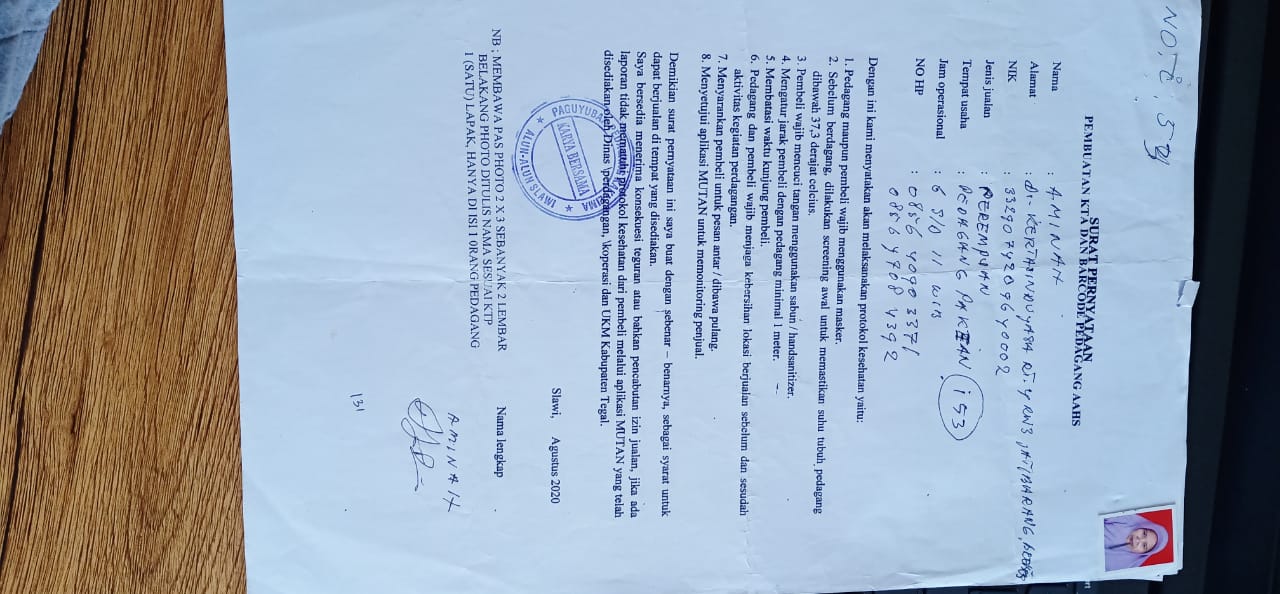 NOTE, 54
SURAT PERNYATAAN
PEMBUATAN KTA DAN BARCODE PEDAGANG AAHS
Nama : AMINAH
Alamat : dr. KERTAINDUYASA RT. 4 RW3, JATIBARANG,
NIK : 3329074209640002
Jenis jualan : PEREMPUAN
Tempat usaha : PEDAGANG PAKEIAN 153
Jam operasional : 6 S/D 11 WIB
NO HP : 0856 4090 3371
0856 4708 4392
Dengan ini kami menyatakan akan melaksanakan protokol kesehatan yaitu:
1. Pedagang maupun pembeli wajib menggunakan masker.
2. Sebelum berdagang, dilakukan screening awal untuk memastikan suhu tubuh pedagang
dibawah 37,3 derajat celcius.
3. Pembeli wajib mencuci tangan menggunakan sabun / handsanitizer.
4. Mengatur jarak pembeli dengan pedagang minimal 1 meter.
5. Membatasi waktu kunjung pembeli.
6. Pedagang dan pembeli wajib menjaga kebersihan lokasi berjualan sebelum dan sesudah
aktivitas kegiatan perdagangan.
7. Menyarankan pembeli untuk pesan antar / dibawa pulang.
8. Menyetujui aplikasi MUTAN untuk memonitoring penjual.
Demikian surat pernyataan ini saya buat dengan sebenar – benarnya, sebagai syarat untuk
dapat berjualan di tempat yang disediakan.
Saya bersedia menerima konsekuesi teguran atau bahkan pencabutan izin jualan, jika ada
laporan tidak mematuhi protokol kesehatan dari pembeli melalui aplikasi MUTAN yang telah
disediakan oleh Dinas \perdagangan, \koperasi dan UKM Kabupaten Tegal.
KARYA BERSAMA
ALUN-ALUN SLAWI
Slawi, Agustus 2020
Nama lengkap
AMINAH
NB : MEMBAWA PAS PHOTO 2 X 3 SEBANYAK 2 LEMBAR
BELAKANG PHOTO DITULIS NAMA SESUAI KTP
1 (SATU) LAPAK, HANYA DI ISI 1 0RANG PEDAGANG
131